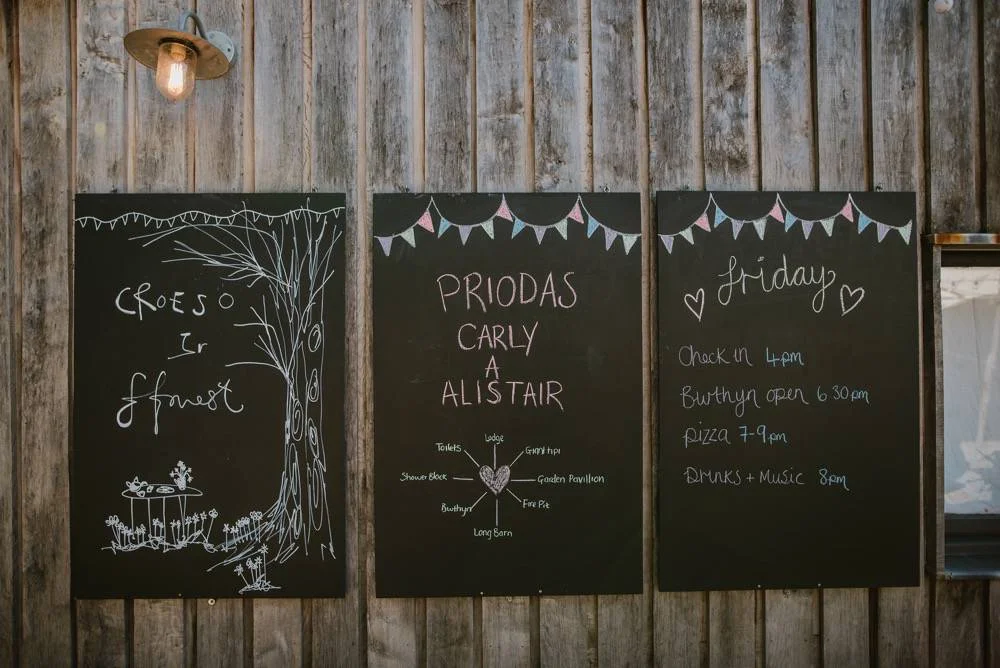 CROESO
Ir
fforest
PRIODAS
CARLY
A
ALISTAIR
Lodge
Toilets
Giant tipi
Shower Block
Garden Pavillion
Bwthyn
Fire Pit
Long Barn
friday
Check in 4pm
Bwthyn open 6 30pm
pizza 7-9pm
Drinks + Music 8pm